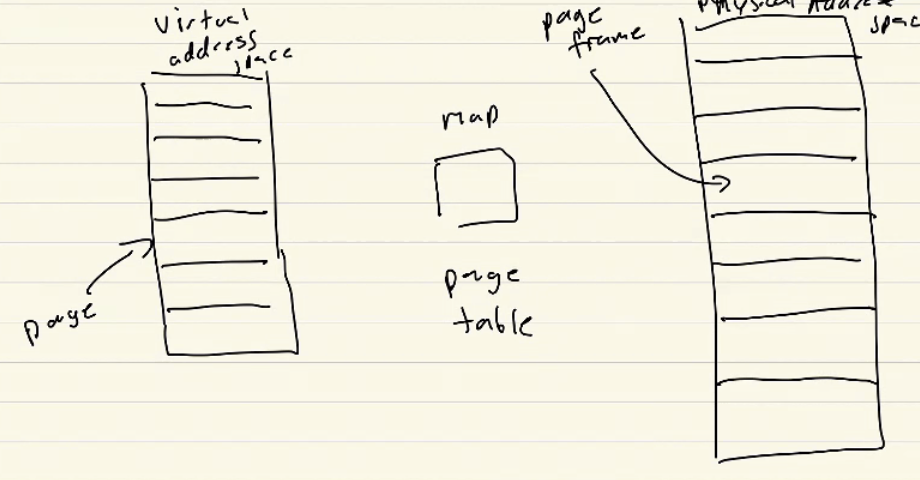 virtual
address
space
page
map
page
table
page
frame
Physical Address
space